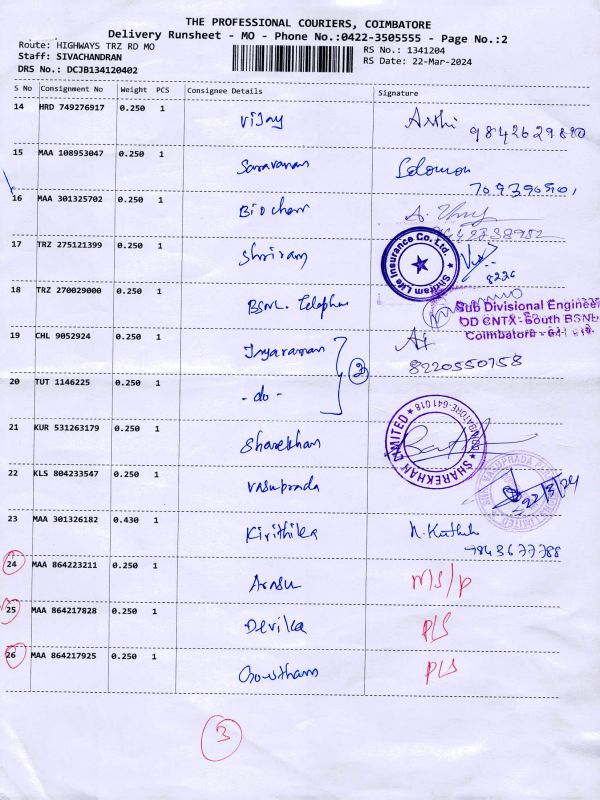 THE PROFESSIONAL COURIERS, COIMBATORE
Delivery Runsheet - MO - Phone No.:0422-3505555 - Page No.:2
Route: HIGHWAYS TRZ RD MO RS No.: 1341204
Staff: SIVACHANDRAN RS Date: 22-Mar-2024
DRS No.: DCJB134120402
S No Consignment No Weight PCS Consignee Details Signature
14 HRD 749276917 0.250 1 Vijay
9842629890
15 MAA 108953047 0.250 1 Saravanan Solomon
16 MAA 301325702 0.250 1 Biochem
17 TRZ 275121399 0.250 1 Shriram
Shriram Life Insurance Co. Ltd.
8226
18 TRZ 270029000 0.250 1 BSNL
Sub Divisional Engineer
OD CNTX-South BSNL
Coimbatore - 641
19 CHL 9052924 0.250 1 Jayaraman
8220550758
2
20 TUT 1146225 0.250 1 - do -
21 KUR 531263179 0.250 1 Sharekhan
SHAREKHAN LIMITED COIMBATORE-641018
22 KLS 804233547 0.250 1 Vasuprada
22/3/24
23 MAA 301326182 0.430 1 Kirithika
9843677788
24 MAA 864223211 0.250 1 Arasu
25 MAA 864217828 0.250 1 Devika P/S
26 MAA 864217925 0.250 1 Gowtham P/S
3